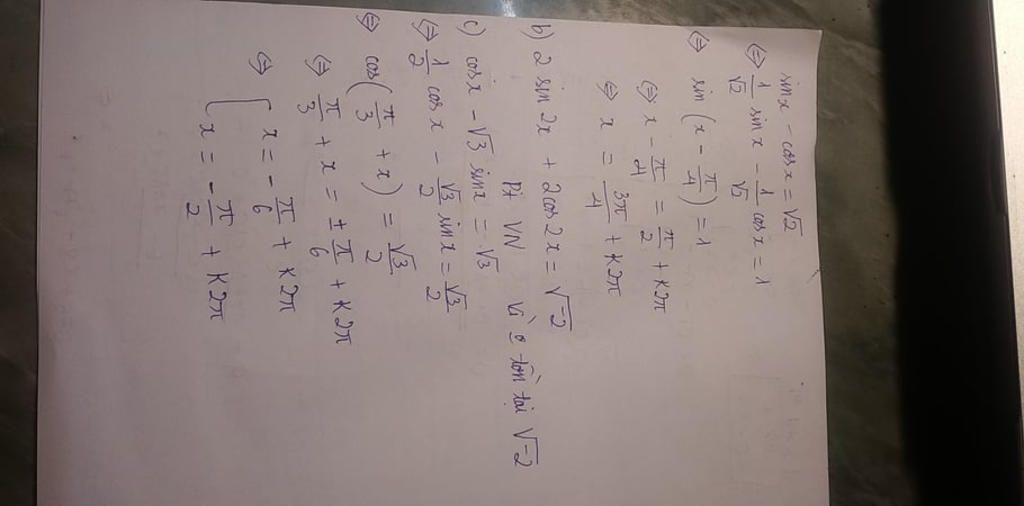 sinx - cosx = √2
⇔ 1/√2 sin x - 1/√2 cosx = 1
⇔ sin (x - π/4) = 1
⇔ x - π/4 = π/2 + k2π
⇔ x = 3π/4 + k2π
b) 2 sin 2x + 2cos 2x = √-2
Pt VN vì o tồn tại √-2
c) cosx - √3 sinx = √3
⇔ 1/2 cos x - √3/2 sin x = √3/2
⇔ cos(π/3 + x) = √3/2
⇔ π/3 + x = ± π/6 + k2π
⇔ [ x = - π/6 + k2π
x = - π/2 + k2π